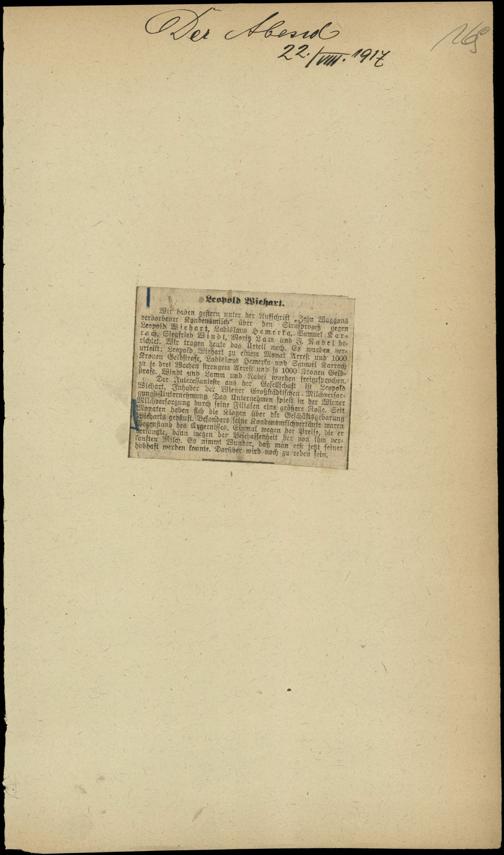 Der Abend
22./VIII. 1917
Leopold Wiehart.
Wir haben gestern unter der Aufschrift „Zehn Waggons
verdorbener Kondensmilch“ über den Strafprozeß gegen
Leopold Wiehart, Ladislaus Hemerka, Samuel Kar-
rach, Siegfried Windt, Moritz Lam und J. Nabel be-
richtet. Wir tragen heute das Urteil nach. Es wurden ver-
urteilt: Leopold Wiehart zu einem Monat Arrest und 1000
Kronen Geldstrafe, Ladislaus Hemerka und Samuel Karrach
zu je drei Wochen strengem Arrest und je 1000 Kronen Geld-
strafe. Windt und Lamm und Nabel wurden freigesprochen.
Der Interessanteste aus der Gesellschaft ist Leopold
Wiehart, Inhaber der Wiener Großstädtischen Milchversor-
gungsunternehmung. Das Unternehmen spielt in der Wiener
Milchversorgung durch seine Filialen eine größere Rolle. Seit
Monaten haben sich die Klagen über die Geschäftsgebarung
Wieharts gehäuft. Besonders seine Kondensmilchverkäufe waren
Gegenstand des Ärgernisses. Einmal wegen der Preise, die er
verlangte, dann wegen der Beschaffenheit der von ihm ver-
kauften Milch. Es nimmt Wunder, daß man erst jetzt seiner
habhaft werden konnte. Darüber wird noch zu reden sein.